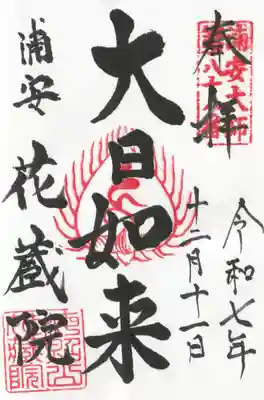 奉拝
令和七年
十二月十一日
大日如来
浦安
花蔵院